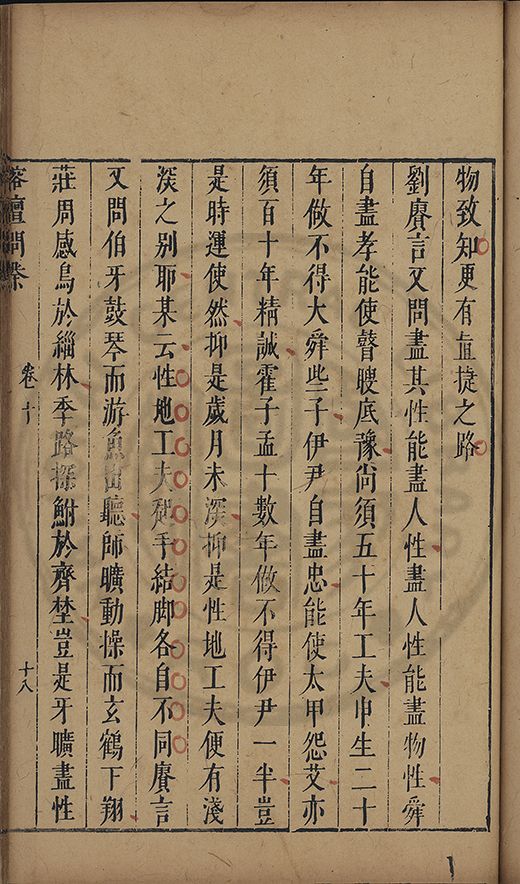 物致知更有直捷之路
劉賡言又問盡其性能盡人性盡人性能盡物性舜
自盡孝能使瞽瞍底豫尚須五十年工夫申生二十
年做不得大舜些子伊尹自盡忠能使太甲怨艾亦
須百十年精誠霍子孟十數年做不得伊尹一半豈
是時運使然抑是歲月未深抑是性地工夫便有淺
深之別耶某云性地工夫砌手結脚各自不同賡言
又問伯牙鼓琴而游魚出聽師曠動操而玄鶴下翔
莊周感鳥於緇林季路探鮒於齊埜豈是牙曠盡性
榕壇問業
卷十
十八